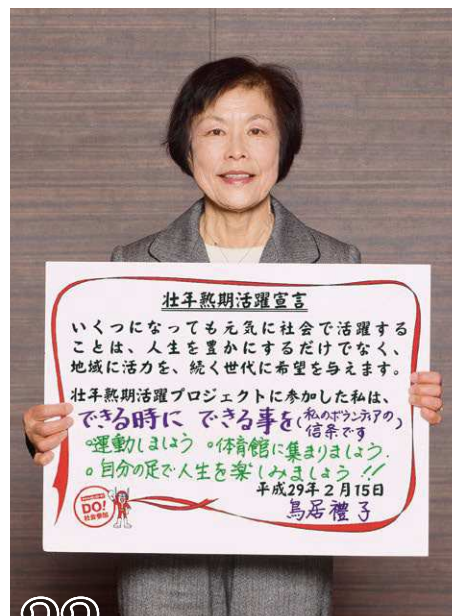 壮年熟期活躍宣言
いくつになっても元気に社会で活躍する
ことは、人生を豊かにするだけでなく、
地域に活力を、続く世代に希望を与えます。
壮年熟期活躍プロジェクトに参加した私は、
できる時に できる事を(私のボランティアの信条です)
○運動しましょう ○体育館に集まりましょう.
○自分の足で人生を楽しみましょう!!
平成29年2月15日
鳥居禮子
DO!
社会参加